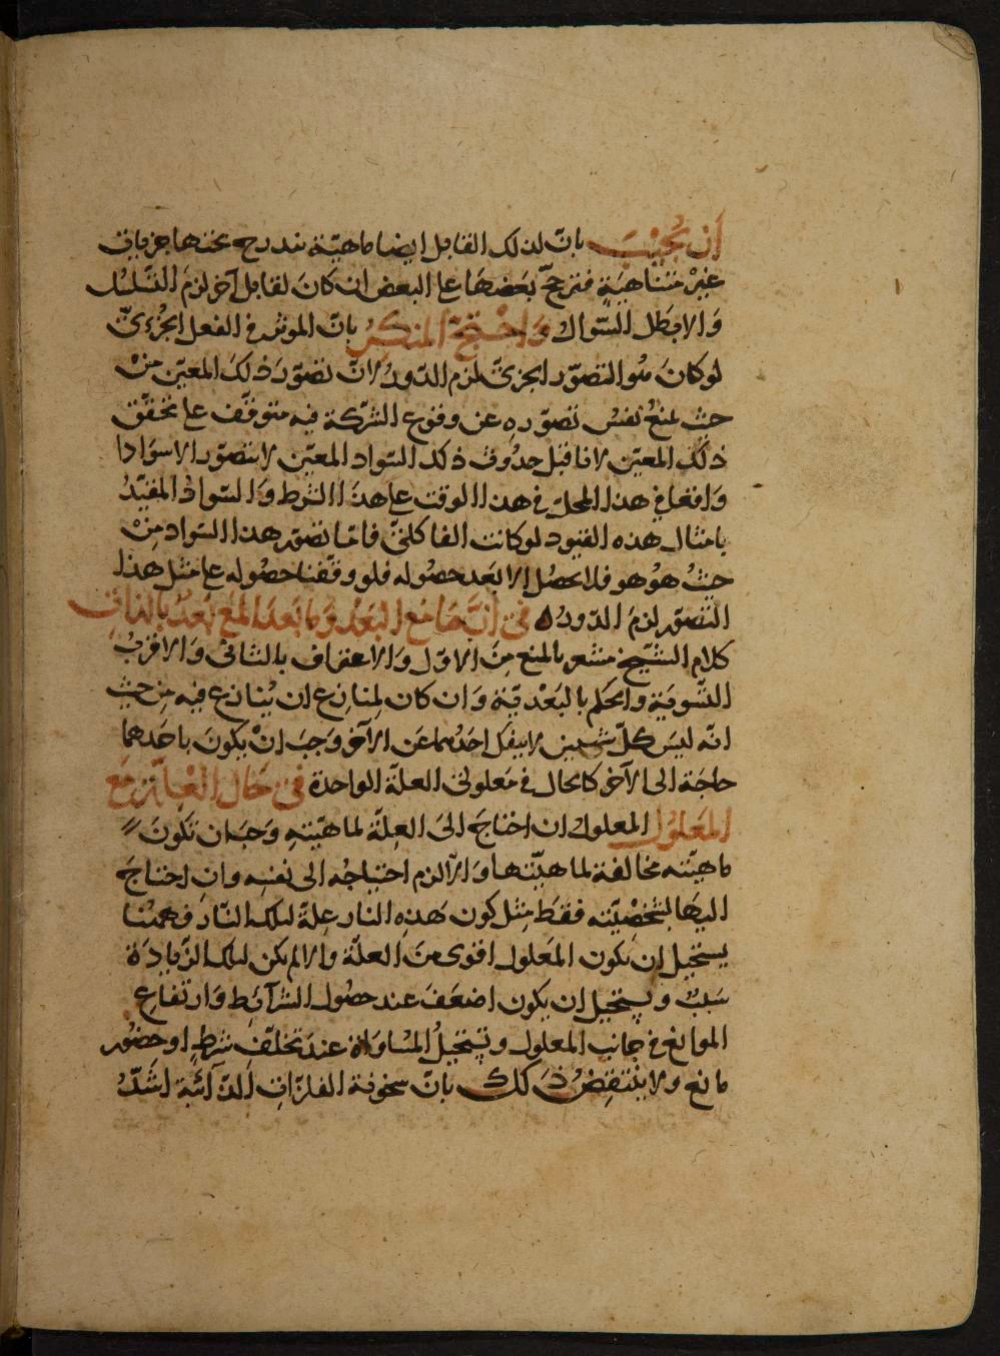 أن يجيب بان لذلك القابل ايضا ماهيّة يندرج تحتها جزيات
غير متناهية فترجّح بعضها على البعض ان كان لقابل آخر لزم التسلسل
والا بطل السّوال واحتجّ المنكر بانّ الموثر في الفعل الجزءيّ
لو كان هو التصوّر الجزيّ لزم الدّور لانّ تصوّر ذلك المعيّن من
حيث يمنع نفس تصوّره عن وقوع الشركة فيه متوقّف على تحقّق
ذلك المعيّن لانا قبل حدوث ذلك السّواد المعيّن لا نتصوّر الا سوادا
واقعا في هذا المحلّ في هذا الوقت على هذا الشرط والسّواد المقيّد
بامثال هذه القيود لو كانت الفا كلّيّ فامّا تصوّر هذا السّواد من
حيث هو هو فلا يحصل إلا بعد حصوله فلو وقّفنا حصوله على مثل هذا
التصوّر لزم الدّور في انّ ما مع البعد وما بعد المع بعد بالذات
كلام الشيخ مشعر بالمنع من الاوّل والاعتراف بالثاني والاقرب
التسوية والحكم بالبعديّة وان كان لمنازع ان ينازع فيه من حيث
انّه ليس كلّ شيين لا ينفك احدهما عن الآخر وجب ان يكون باحدهما
حاجة الى الآخر كالحال في معلولي العلّة الواحدة في حال العلّة مع
المعلول المعلول ان احتاج الى العلّة لماهيّته وجب ان تكون
ماهيّته مخالفة لماهيّتها والّا لزم احتياجه الى نفسه وان احتاج
اليها لشخصيّته فقط مثل كون هذه النار علّة لتلك النّار فههنا
يستحيل ان يكون المعلول اقوى من العلّة والا لم يكن لتلك الزيادة
سبب ويستحيل ان يكون اضعف عند حصول الشرآئط وارتفاع
الموانع في جانب المعلول وتستحيل المساواة عند تخلّف شرط او حضور
مانع ولا ينتقض ذلك بانّ سخونة الفلزّات الذّآئبة اشدّ